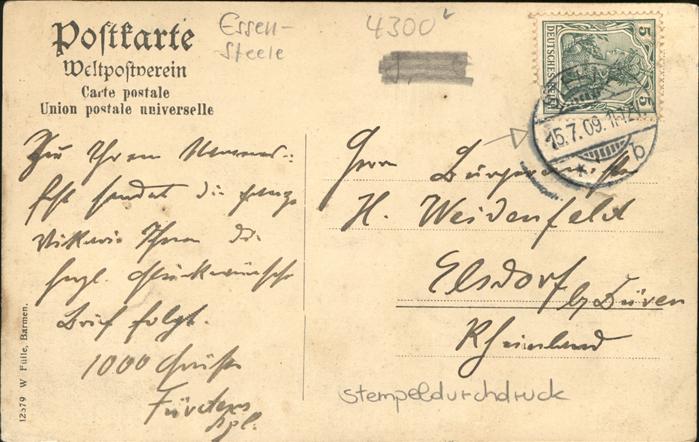 Postkarte
Weltpostverein
Carte postale
Union postale universelle
Essen-
Steele
4300
DEUTSCHES REICH
5 5
15.7.09. 11-12
b
Zu Ihrem
sendet die
Ihnen die
herzl. Glückwünsche
Brief folgt.
1000 Grüße
Herrn Bürgermeister
H. Weidenfeld
Elsdorf
b/Düren
Rheinland
Stempeldurchdruck
12579 W Fülle, Barmen.